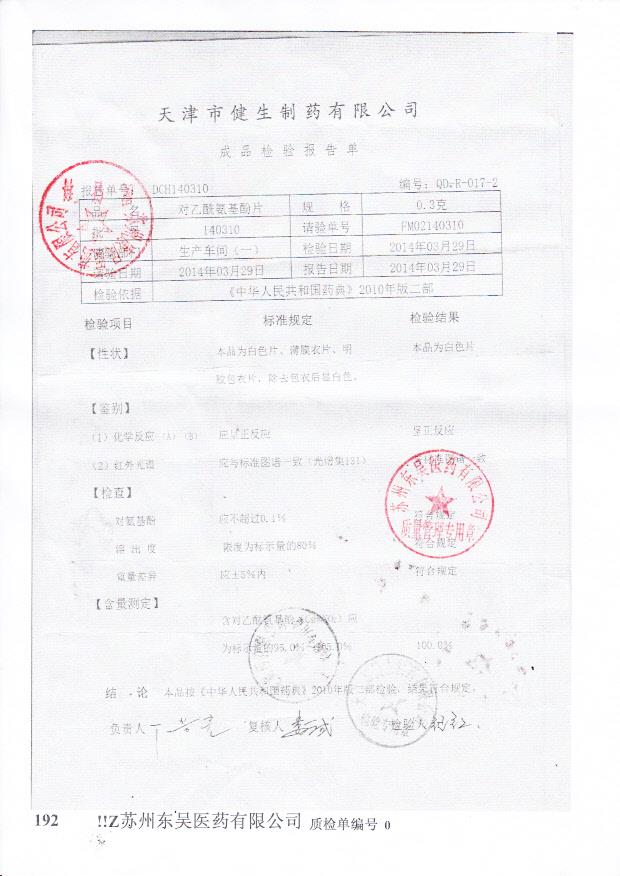 天津市健生制药有限公司
成品检验报告单
DCH140310 编号：QD-R-017-2
对乙酰氨基酚片 规格 0.3克
140310 请验单号 FM02140310
生产车间（一） 检验日期 2014年03月29日
日期 2014年03月29日 报告日期 2014年03月29日
检验依据 《中华人民共和国药典》2010年版二部
检验项目 标准规定 检验结果
【性状】 本品为白色片、薄膜衣片、明 本品为白色片
胶包衣片，除去包衣后显白色。
【鉴别】
（1）化学反应（A）（B） 应呈正反应 呈正反应
（2）红外光谱 应与标准图谱一致（光谱集131） 一致
【检查】
对氨基酚 应不超过0.1% 符合规定
溶出度 限度为标示量的80% 符合规定
重量差异 应±5%内 符合规定
【含量测定】
含对乙酰氨基酚 应
为标示量的95.0% 100.0%
结论 本品按《中华人民共和国药典》2010年版二部检验，结果符合规定。
负责人 复核人 检验人
苏州东吴医药有限公司
质量管理专用章
192 !!Z苏州东吴医药有限公司 质检单编号 0